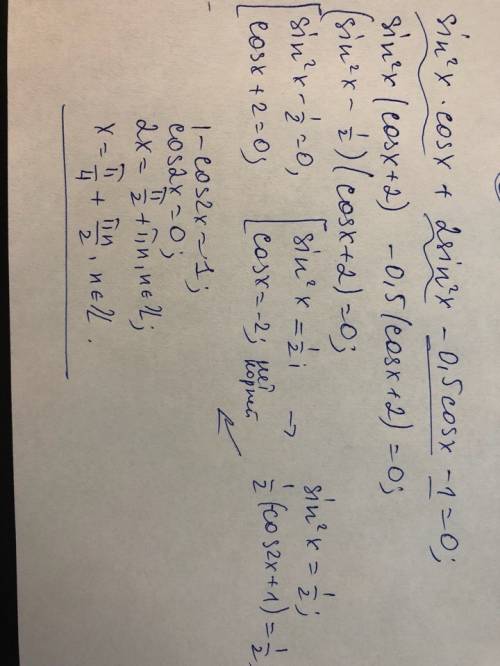 sin²x · cosx + 2sin²x − 0,5cosx − 1 = 0;
sin²x (cosx + 2) − 0,5 (cosx + 2) = 0;
(sin²x − 1/2) (cosx + 2) = 0;
[ sin²x − 1/2 = 0, [ sin²x = 1/2; → sin²x = 1/2;
cosx + 2 = 0; cosx = −2; нет корней 1/2 (cos2x + 1) = 1/2
1 − cos2x = 1;
cos2x = 0;
2x = π/2 + πn, n ∈ Z;
x = π/4 + πn/2, n ∈ Z.